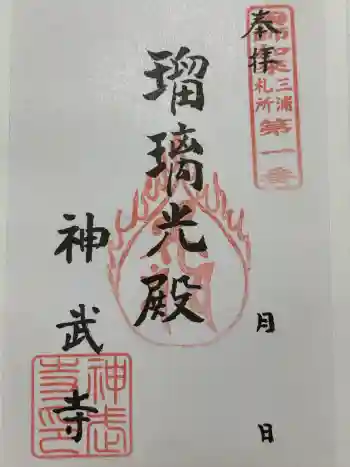 奉拝
三浦
札所
第一番
瑠璃光殿
月
日
神武寺
神武
寺印